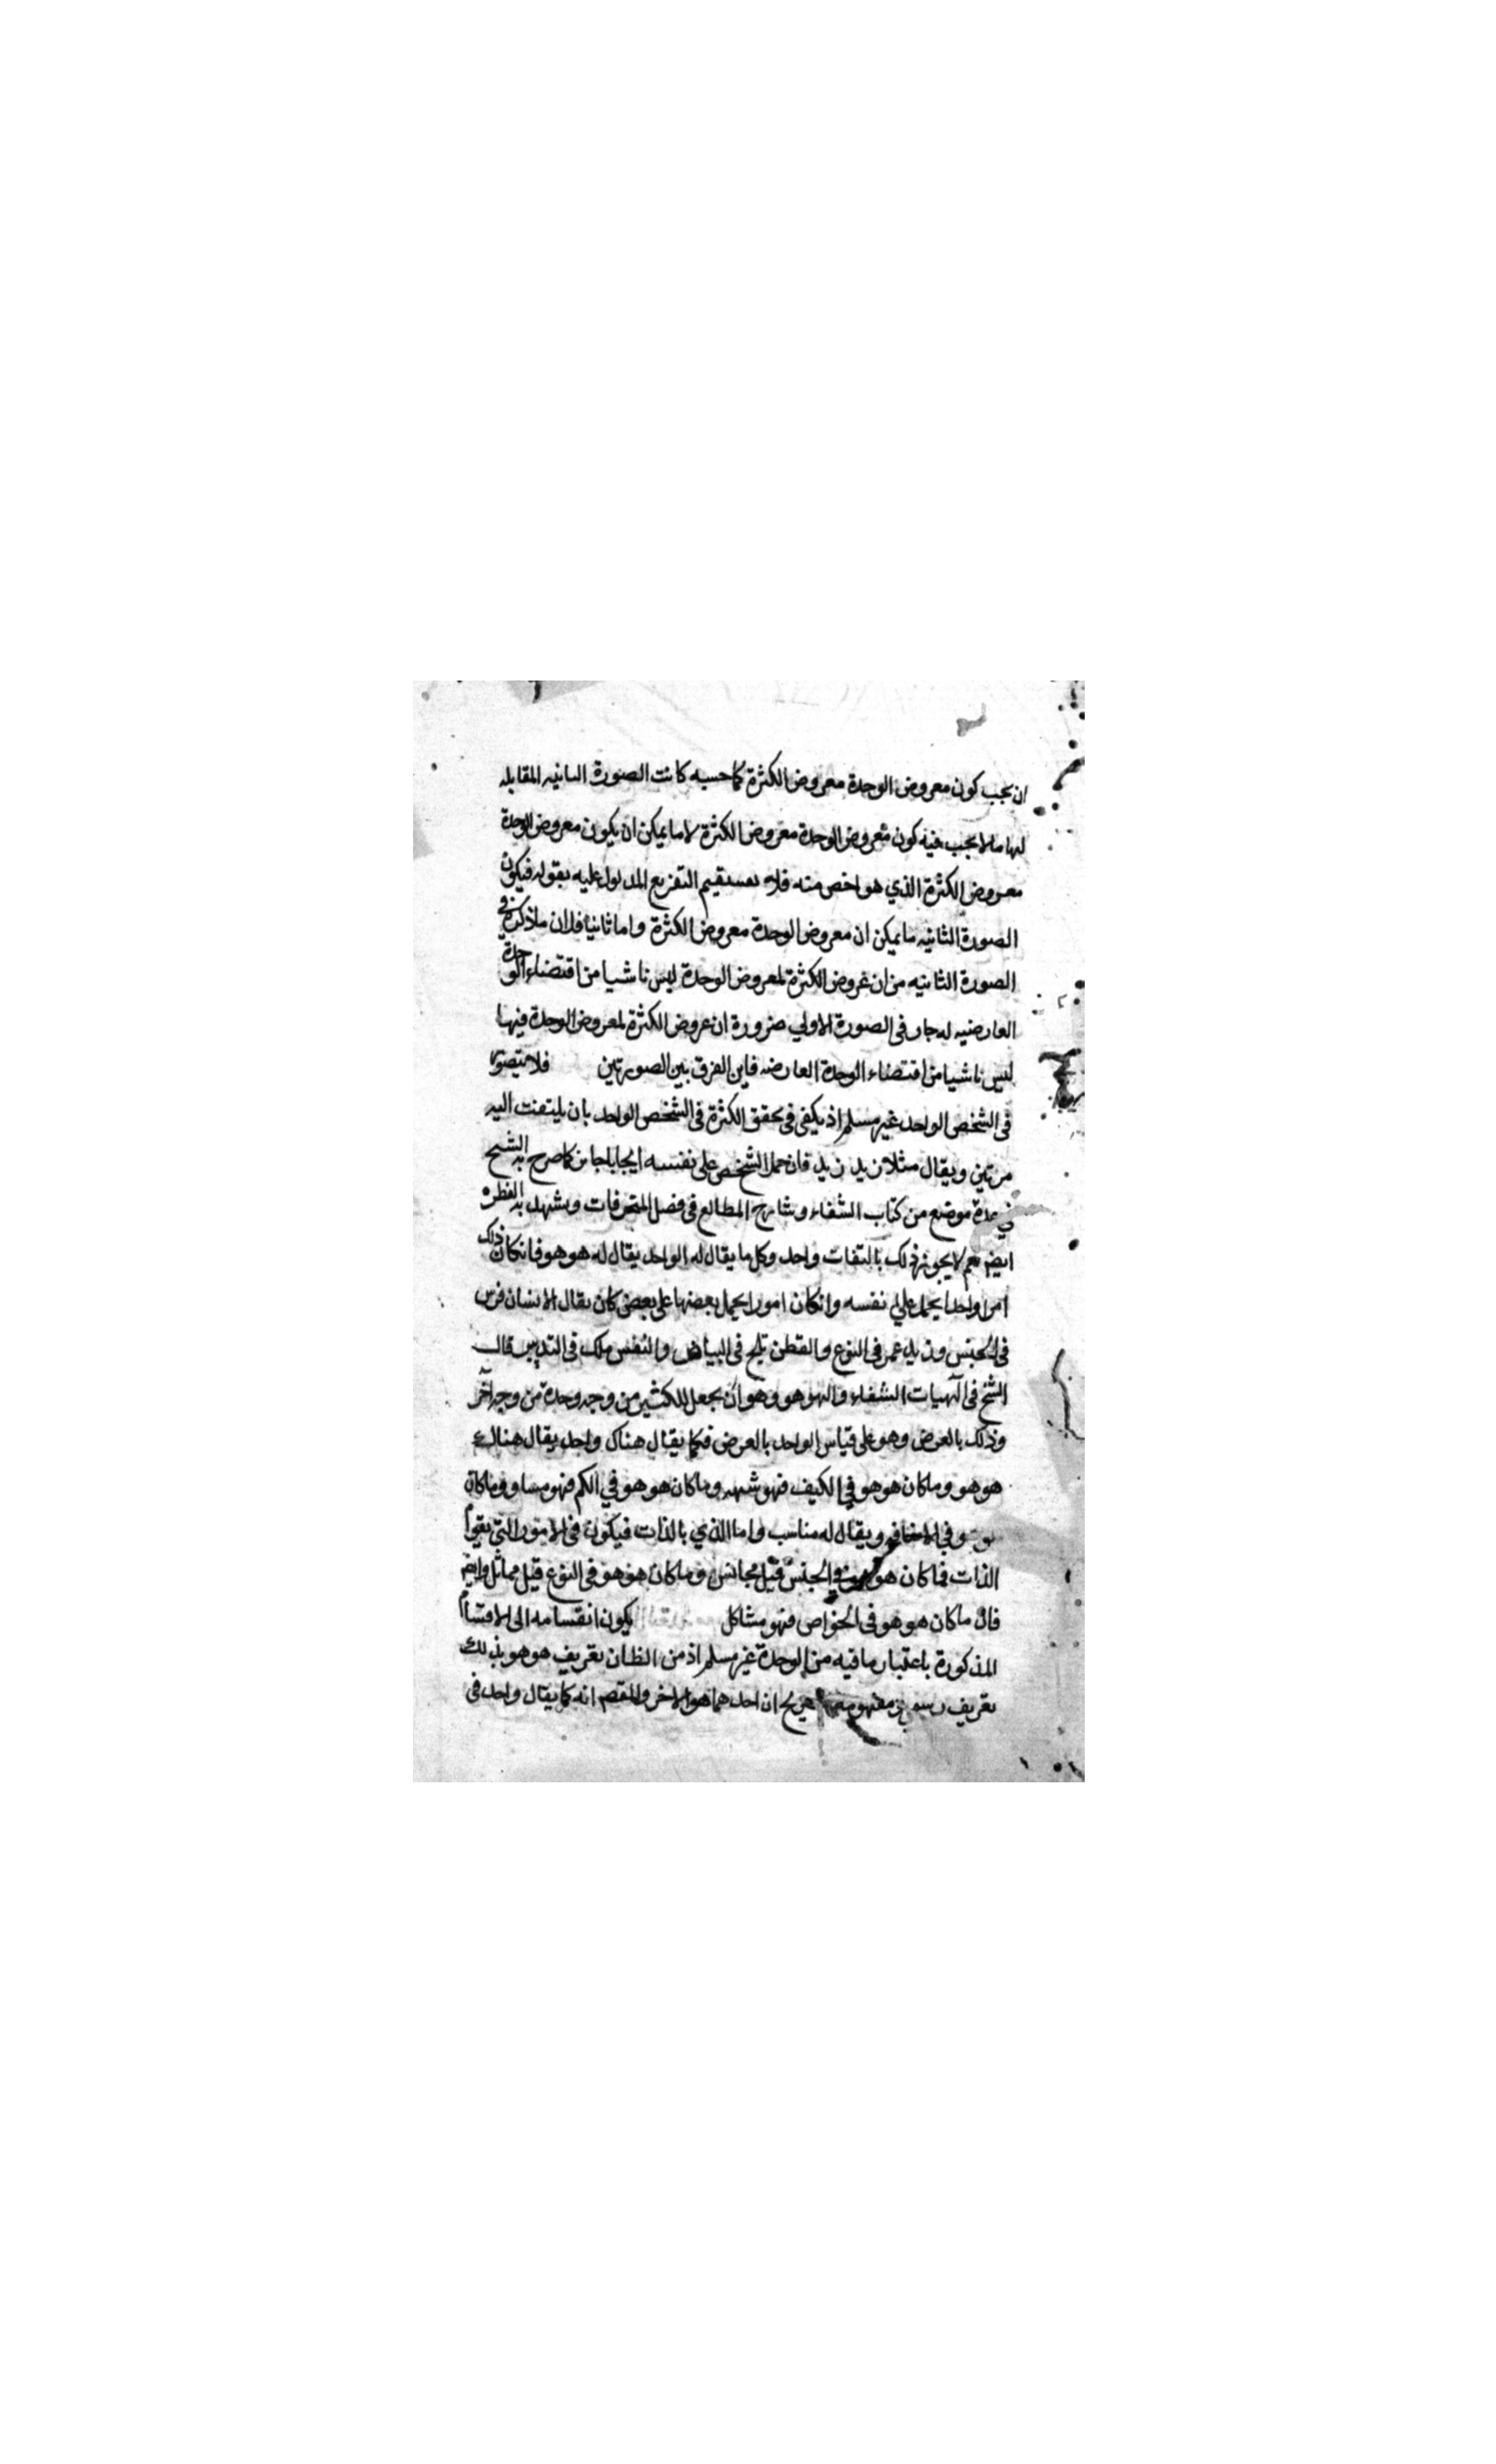 ان يجب كون معروض الوحدة معروض الكثرة كما حسبه كانت الصورة الثانيه المقابله
لها ما لا يجب فيه كون معروض الوحدة معروض الكثرة لا ما يمكن ان يكون معروض الوحدة
معروض الكثرة الذي هو اخص منه فلا يستقيم التفريع المدلول عليه بقوله فيكون
الصورة الثانيه ما يمكن ان معروض الوحدة معروض الكثرة واما ثانيا فلان ما ذكره في
الصورة الثانيه من ان عروض الكثرة لمعروض الوحدة ليس ناشيا من اقتضاء الوحدة
العارضيه له جار في الصورة الاولي ضرورة ان عروض الكثرة لمعروض الوحدة فيها
ليس ناشيا من اقتضاء الوحدة العارضه فاين الفرق بين الصورتين فلا يتصور
في الشخص الواحد غير مسلم اذ يكفي في تحقق الكثرة في الشخص الواحد بان يلتفت اليه
مرتين ويقال مثلا زيد زيد فان حمل الشخص على نفسه ايجابا جائز كما صرح به الشيخ
في عدة موضع من كتاب الشفاء وشارح المطالع في فصل المتحرفات ويشهد به الفطره
ايضا نعم لا يجوز ذلك بالتفات واحد وكل ما يقال له الواحد يقال له هو هو فان كان ذلك
امرا واحدا يحمل علي نفسه وان كان امورا يحمل بعضها على بعض كان يقال الانسان فرس
في الجنس وزيد عمر في النوع والقطن ثلج في البياض والنفس ملك في التدبير قال
الشيخ في آلهيات الشفاء والهو هو وهو ان يجعل للكثير من وجه وحدة من وجه آخر
وذلك بالعرض وهو على قياس الواحد بالعرض فكما يقال هناك واحد يقال هناك
هو هو وما كان هو هو في الكيف فهو شبهه وما كان هو هو في الكم فهو مساو وما كان
هو هو في الاضافه ويقال له مناسب واما الذي بالذات فيكون في الامور التي تقوم
الذات فما كان هو هو في الجنس قيل مجانس وما كان هو هو في النوع قيل مماثل وايضا
قال ما كان هو هو في الخواص فهو مشاكل يكون انقسامه الى الاقسام
المذكورة باعتبار ما فيه من الوحدة غير مسلم اذ من الظان تعريف هو هو بذلك
تعريف رسمي مفهومه ان احدهما هو الاخر والمقصم انه كما يقال واحد في